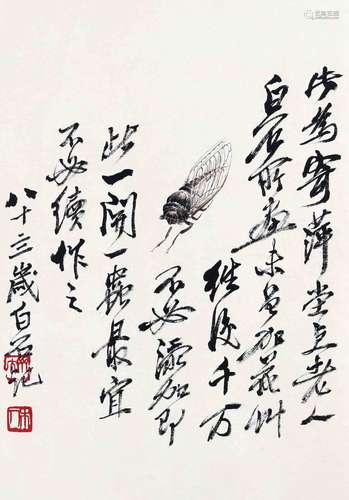 為寄萍堂上老人
白石所畫未曾加花艸
後千万
不必添加即
此一開一蟲最宜
不必續作之
八十三歲白石記